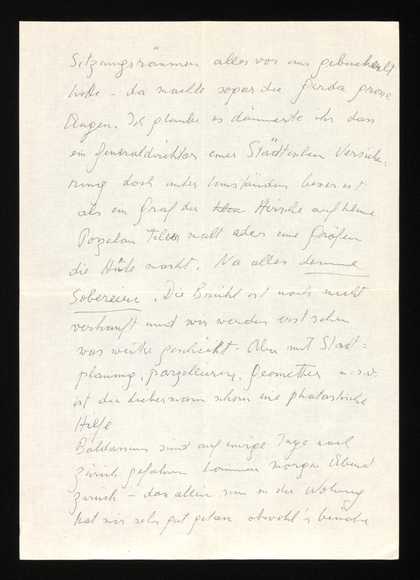 Sitzungsräumen alles vor uns gebuckelt
hatte - da machte sogar die Gerda grosse
Augen. Ich glaube es dämmerte ihr dass
ein Generaldirektor einer Städtischen Versiche-
rung doch unter Umständen besser ist
als ein Graf der Hirsche auf kleine
Porzelan malt oder eine Gräfin
die Hüte macht. Na alles dumme
. Die Bricht ist noch nicht
verkauft und wir werden erst sehen
was weiter geschieht. Aber mit Stadt=
planung, parzellierung, Geomether u.s.w.
ist der Liebermann schon eine phantastische
Hilfe
Baldassers sind auf einige Tage nach
Zürich gefahren kommen morgen Abend
zurück - das allein sein in der Wohnung
hat mir sehr gut getan obwohl i beinahe